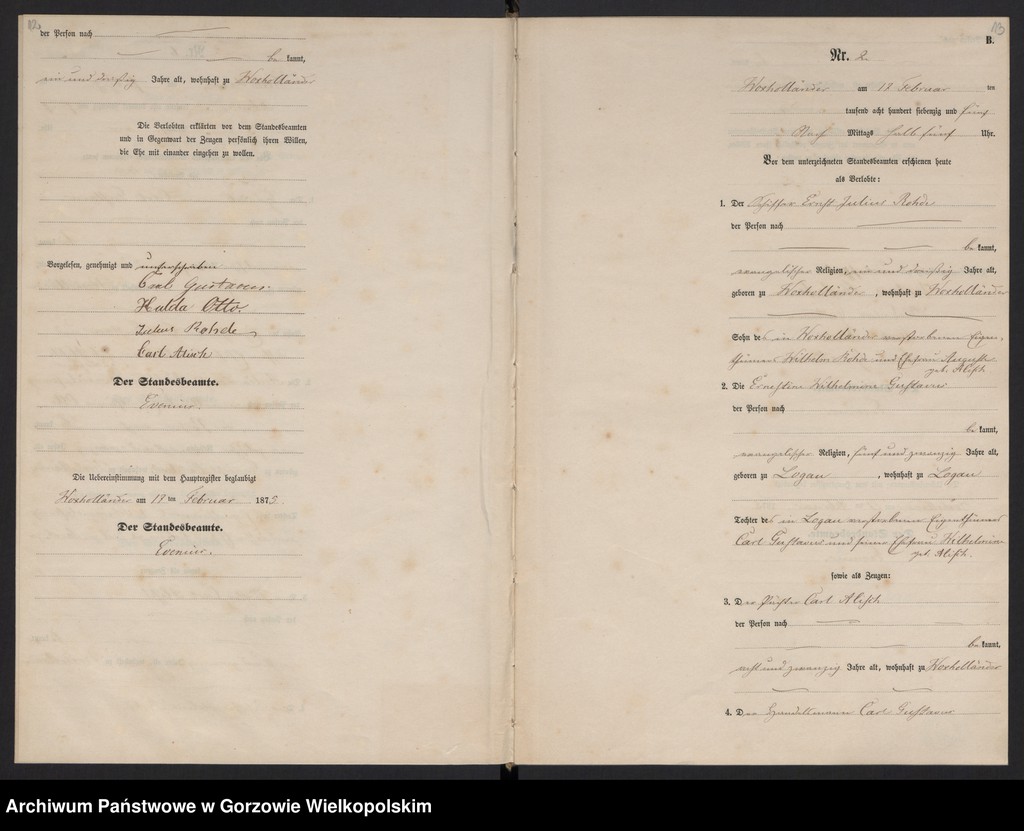 12
der Person nach
be kannt,
ein und dreißig Jahre alt, wohnhaft zu Woxholländer
Die Verlobten erklärten vor dem Standesbeamten
und in Gegenwart der Zeugen persönlich ihren Willen,
die Ehe mit einander eingehen zu wollen.
Vorgelesen, genehmigt und unterschrieben
Carl Gustavus.
Hulda Otto.
Julius Rohde
Carl Alisch
Der Standesbeamte.
Die Uebereinstimmung mit dem Hauptregister beglaubigt
Woxholländer am ten Februar 1875.
Der Standesbeamte.
13
B.
Nr. 2
Woxholländer am Februar ten
tausend acht hundert siebenzig und fünf
Nach Mittags halb fünf Uhr.
Vor dem unterzeichneten Standesbeamten erschienen heute
als Verlobte:
1. Der Schiffer Ernst Julius Rohde
der Person nach
be kannt,
evangelischer Religion, ein und dreißig Jahre alt,
geboren zu Woxholländer, wohnhaft zu Woxholländer
Sohn des in Woxholländer verstorbenen Eigen-
thümers Wilhelm Rohde und Ehefrau Auguste
geb. Alisch
2. Die Ernestine Wilhelmine Gustavus
der Person nach
be kannt,
evangelischer Religion, fünf und zwanzig Jahre alt,
geboren zu Logau, wohnhaft zu Logau
Tochter des in Logau verstorbenen Eigenthümers
Carl Gustavus und seiner Ehefrau Wilhelmine
geb. Alisch.
sowie als Zeugen:
3. Der Carl Alisch
der Person nach
be kannt,
acht und zwanzig Jahre alt, wohnhaft zu Woxholländer
4. Der Handelsmann Carl Gustavus
Archiwum Państwowe w Gorzowie Wielkopolskim